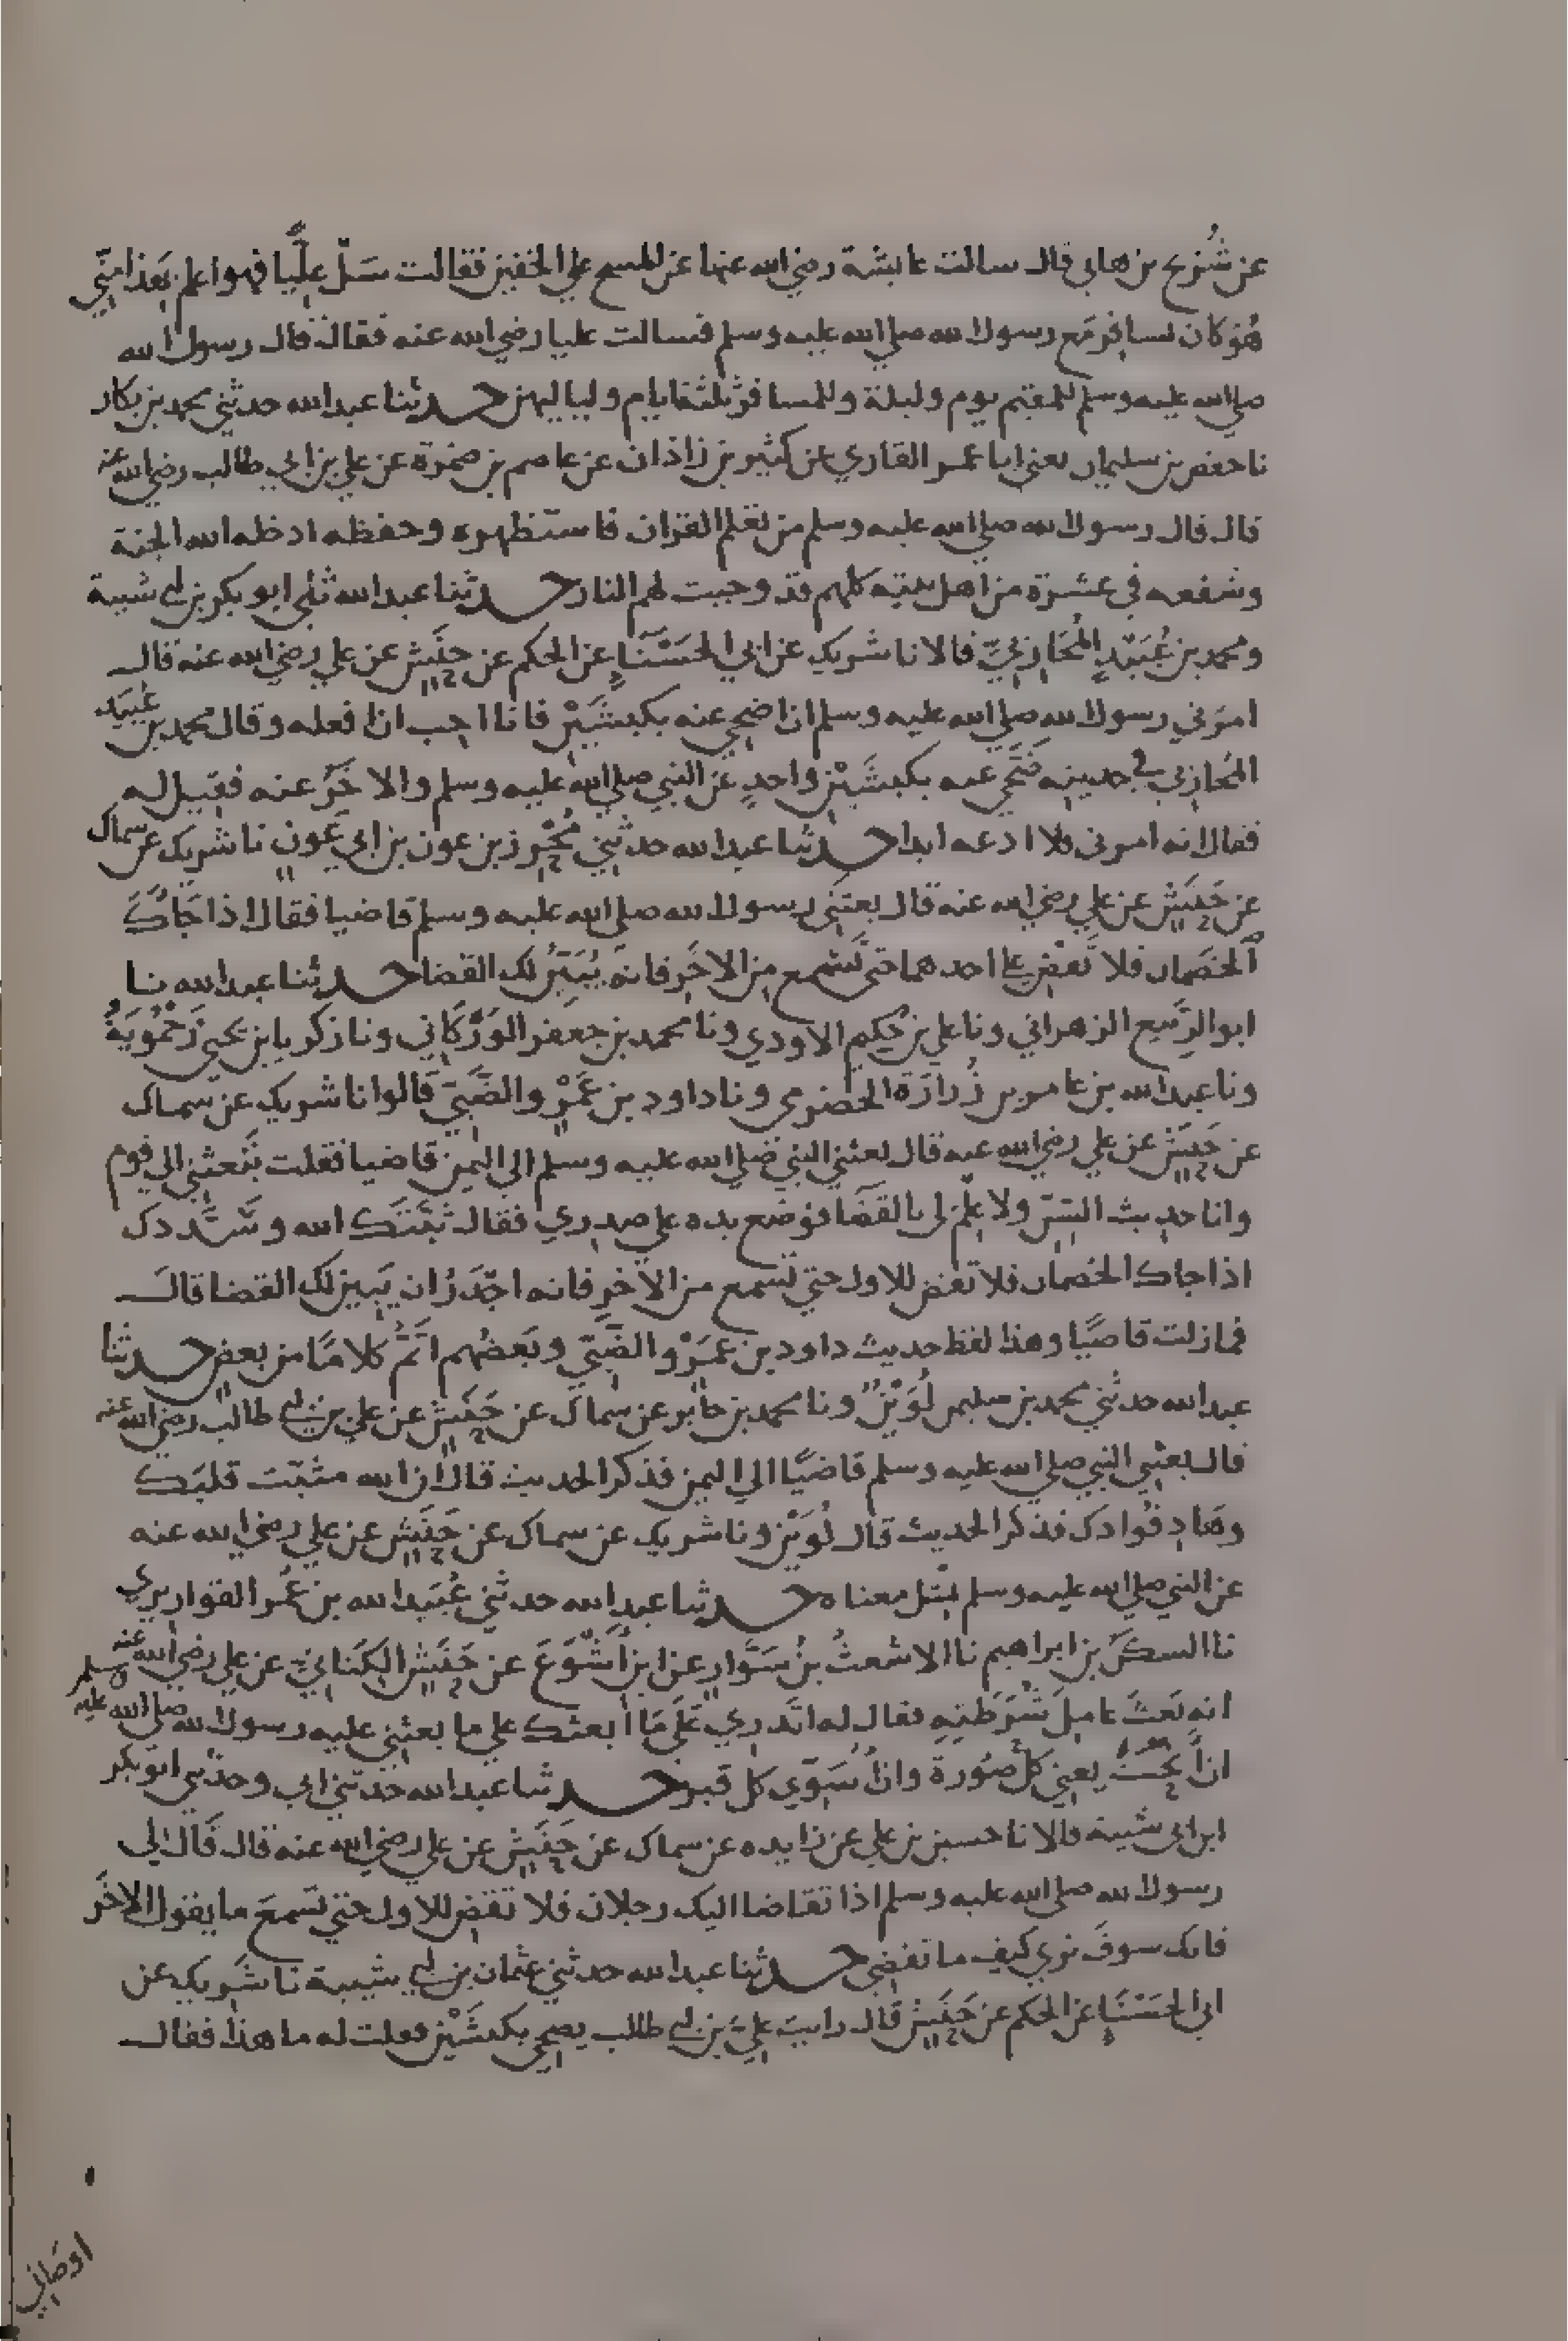 عن شُرَيح بن هاني قال سالت عايشة رضي الله عنها عن المسح علي الخفين فقالت سَلْ عليًّا فهو اعلم بهذا مني
هُو كان يسافر مَع رسول الله صلي الله عليه وسلم فسالت عليا رضي الله عنه فقال قال رسول الله
صلي الله عليه وسلم للمقيم يوم وليلة وللمسافر ثلثة ايام ولياليهن حدثنا عبد الله حدثني محمد بن بكار
نا حفص بن سليمان يعني ابا عمر القاري عن كثير بن زاذان عن عاصم بن ضمرة عن علي بن ابي طالب رضي الله عنه
قال قال رسول الله صلي الله عليه وسلم من تعلم القران فاستظهره وحفظه ادخله الله الجنة
وشفعه في عشرة من اهل بيته كلهم قد وجبت لهم النار حدثنا عبد الله ثني ابو بكر بن ابي شيبة
ومحمد بن عُبَيْدٍ المُحَارِبيّ قالا نا شريك عن ابي الحَسْنَاءِ عن الحكم عن حَنَشٍ عن علي رضي الله عنه قال
امرَني رسول الله صلي الله عليه وسلم ان اضحي عنه بكبشَيْنِ فانا احب ان افعله وقال محمد بن عُبَيد
المُحاربي في حديثه ضَحَّي عنه بكبشَيْنِ واحدٍ عن النبي صلي الله عليه وسلم والاخَر عنه فقيل له
فقال انه امرني فلا ادعه ابدا حدثنا عبد الله حدثني مُحْرِز بن عون بن ابي عَونٍ نا شريك عن سماك
عن حَنَشٍ عن علي رضي الله عنه قال بعثني رسول الله صلي الله عليه وسلم قاضيا فقال اذا جَاكَ
الخصمان فلا تَقْضِ علي احدهما حتي تَسْمع من الاخَر فانه يُبَيَّنُ لك القضا حدثنا عبد الله نا
ابو الرَّبيع الزهراني ونا علي بن حَكيم الاودي ونا محمد بن جعفر الوَرْكَاني ونا زكريا بن يحيي زَحْمُويَهْ
ونا عبد الله بن عامر بن زُرارَة الحضرمي ونا داود بن عَمْرٍو الضَّبّيّ قالوا نا شريك عن سماك
عن حَنَشٍ عن علي رضي الله عنه قال بعثني النبي صلي الله عليه وسلم الي اليمن قاضيا فقلت تَبْعثني الي قوم
وانا حديث السِّنّ ولا عِلْم لي بالقضَا فوضع يده علي صدري فقال ثَبَّتَكَ الله وسَدَّدك
اذا جاك الخصمان فلا تقض للاول حتي تَسْمع من الاخر فانه اجْدَرُ ان يَبِين لك القضا قال
فما زلت قاضيًا وهذا لفظ حديث داود بن عَمْرٍو الضَّبّيّ وبَعضُهم اتَمُّ كلامًا من بعض حدثنا
عبد الله حدثني محمد بن سليمن لُوَيْنٌ ونا محمد بن جابر عن سماك عن حَنَشٍ عن علي بن ابي طالب رضي الله عنه
قال بعثني النبي صلي الله عليه وسلم قاضيًا الي اليمن فذكر الحديث قال ان الله مثبّت قلبَك
وهَادٍ فُوادك فذكر الحديث قال لُوَيْن ونا شريك عن سماك عن حَنَشٍ عن علي رضي الله عنه
عن النبي صلي الله عليه وسلم بمثل معناه حدثنا عبد الله حدثني عُبَيد الله بن عُمر القواريري
نا السكَن بن ابراهيم نا الاشعثُ بنُ سَوَّارٍ عن ابن اَشْوَعَ عن حَنَشٍ الكِنَانيّ عن علي رضي الله عنه
انه بَعَثَ عامِلَ شُرَطتِهِ فقال له اتَدري عَلَي مَا ابعثك علي ما بعثني عليه رسول الله صلي الله عليه وسلم
ان يعني كل صُورة وان اُسَوّي كل قبر حدثنا عبد الله حدثني ابي وحدثني ابو بكر
ابن ابي شيبة قالا نا حسين بن علي عن زايده عن سماك عن حَنَشٍ عن علي رضي الله عنه قال قَال لي
رسول الله صلي الله عليه وسلم اذا تقاضا اليك رجلان فلا تقض للاول حتي تسمعَ ما يقول الاخَر
فانك سوفَ تري كيف ما تقضي حدثنا عبد الله حدثني عثمان بن ابي شيبة نا شَريك عن
ابي الحَسْنَاءِ عن الحكم عن حَنَشٍ قال رايت عليّ بن ابي طالب يضحي بكبشَيْن فقلت له ما هذا فقال
اوصاني